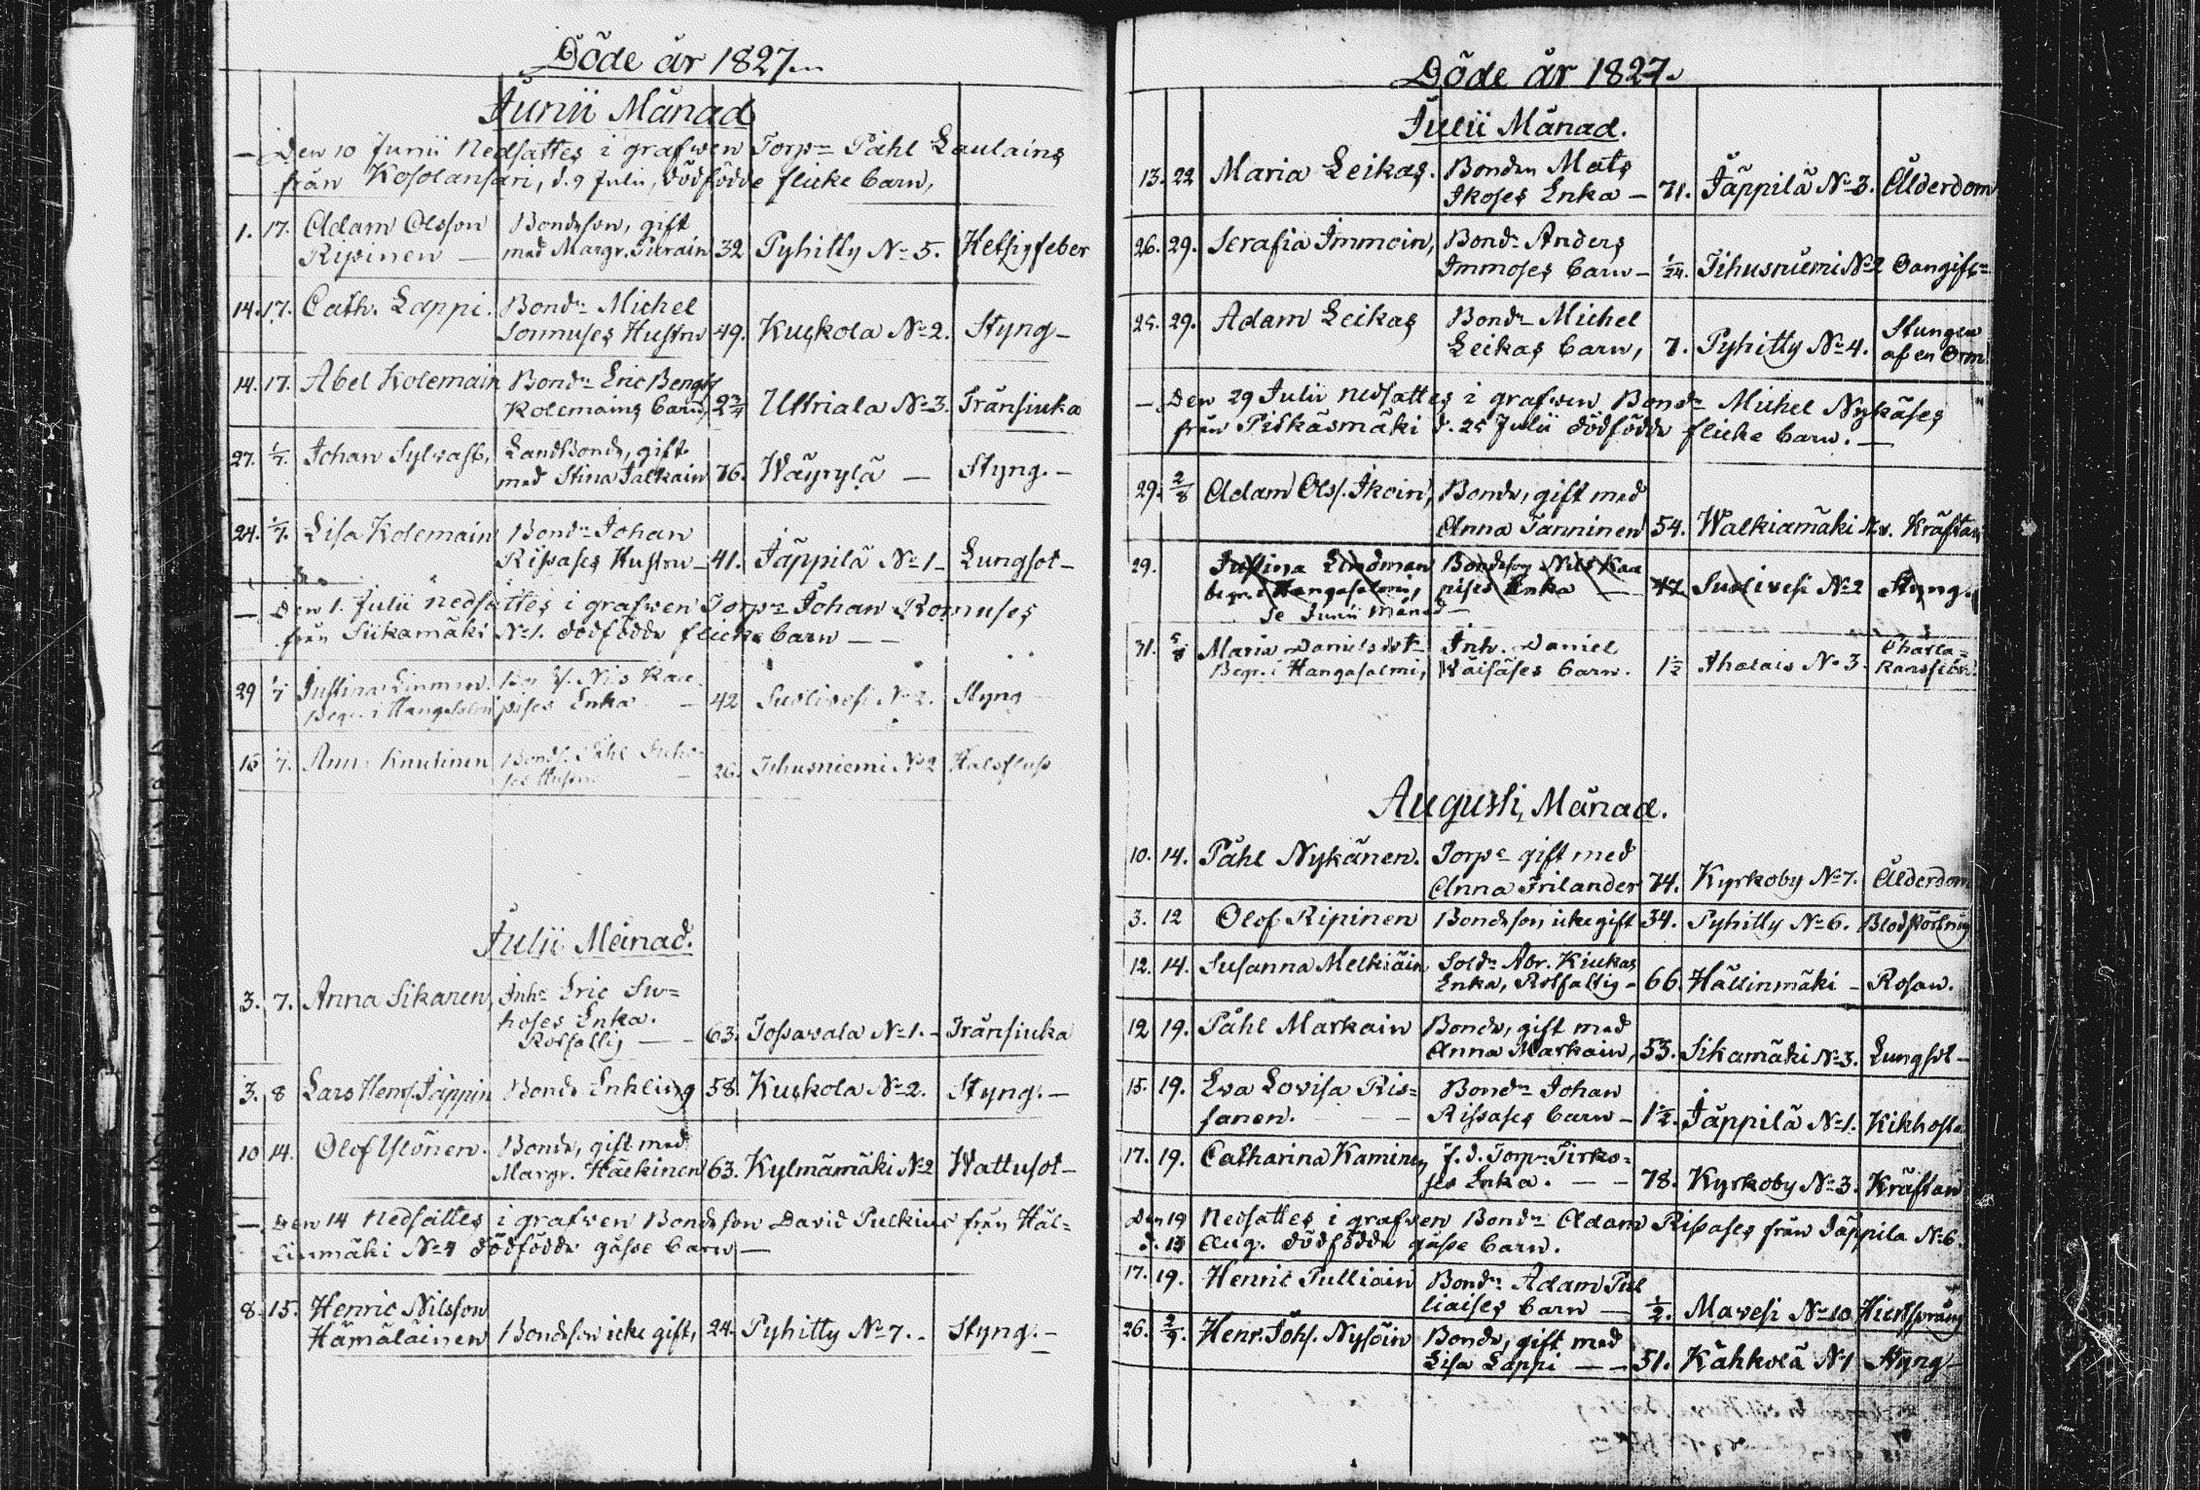 Döde år 1827.
Junii Månad
— Den 10 Junii Nedsattes i grafwen Torp:n Påhl Laulains
från Kosolansari, d. 9 Julii, dödfödde flicke barn,
1. 17. Adam Olsson Bondeson, gift
Ripinen — med Margr. Purain 32 Pyhitty No 5. Hetsigfeber
14. 17. Cath. Lappi. Bond:n Michel
Sormuses Hustru 49. Kuskola No 2. Styng —
14. 17. Abel Kolemain Bond:n Eric Bengts
Kolemains barn, 2 3/4 Uttriala No 3. Trånsiuka
27. 1/7. Johan Sylvast, Landbonde, gift
med Stina Jalkain 76. Wäyrylä — Styng. —
24. 1/7. Lisa Kolemain Bond:n Johan
Rissases Hustru — 41. Jäppilä No 1 — Lungsot —
— Den 1. Julii nedsattes i grafwen Torp:n Johan Romuses
från Siikamäki No 1. dödfödde flicke barn — —
29 1/7 Justina
Begr. i Hangasalmi Enka — 42 Suotivesi No 2. Styng
16 1/7. Anna Knutinen Bond. Påhl
Hustru — 26. Tihusniemi No 2 Halsfluss
Julii Månad.
3. 7. Anna Sikanen, Inh:s Eric Su=
hoses Enka.
Rotfattig — — 63. Jossavala No 1. — Trånsiuka
3. 8 Lars Hens. Jäppin Bonde Enkling 58. Kuskola No 2. Styng. —
10 14. Olof Ylönen. Bonde, gift med
Margr. Häckinen 63. Kylmämäki No 2 Wattusot —
— Den 14 Nedsattes i grafwen Bondeson David Pulkius från Häl=
linmäki No 4 dödfödde gåsse barn —
8. 15. Henric Nilsson
Hämäläinen Bondeson icke gift, 24. Pyhitty No 7. . Styng. —
Döde år 1827.
Julii Månad.
13. 22 Maria Leikas. Bonden Mats
Ikoses Enka — 71. Jäppilä No 3. Ålderdom
26. 29. Serafia Immoin, Bond:n Anders
Immoses barn — 1/24. Tihusniemi No 2 Oangifv:n
25. 29. Adam Leikas Bond:n Michel Stungen
Leikas barn, 7. Pyhitty No 4. af en Orm
— Den 29 Julii nedsattes i grafwen Bond:n Michel Nykäses
från Pitkäsmäki d. 25 Julii dödfödde flicke barn. —
29. 2/8 Adam Olss. Ikoin, Bonde, gift med
Anna Tanninen 54. Walkiamäki Kräftan
29. Justina Lindman Bondeson Nils Kau
begr. i Hangasalmi, pises Enka — 42 Suotivesi No 2 Styng.
Se Junii Månad —
31. 5/8 Maria Danielsdotr Inh. Daniel
Begr. i Hangasalmi, Wäisäses barn. 1 1/2 Ahalais No 3.
Augusti Månad.
10. 14. Påhl Nykänen. Torp:e gift med
Anna Frilander 74. Kyrkoby No 7. Ålderdom
3. 12 Olof Ripinen Bondeson icke gift 34. Pyhitty No 6. Blodstörtning
12. 14. Susanna Melkiäin Sold:n Abr. Kiukas
Enka, Rotfattig — 66. Hällinmäki — Rosan.
12 19. Påhl Markain Bonde, gift med
Anna Markain, 53. Sikamäki No 3. Lungsot —
15. 19. Eva Lovisa Ris= Bond:n Johan
sanen. — Rissases barn — 1 1/2. Jäppilä No 1. Kikhosta
17. 19. Catharina Kaminen f. d. Torp:n Pirko=
ses Enka. — — 78. Kyrkoby No 3. Kräftan
Den 19 Nedsattes i grafwen Bond:n Adam Rissases från Jäppila No 6.
d. 13 Aug. dödfödde gåsse barn.
17. 19. Henric Pulliain Bond:n Adam Pul
liaises barn — 1/2. Mavesi No 10
26. 2/9. Henr. Johs. Nysöin Bonde, gift med
Lisa Lappi — — 51. Kähkölä No 1 Styng —